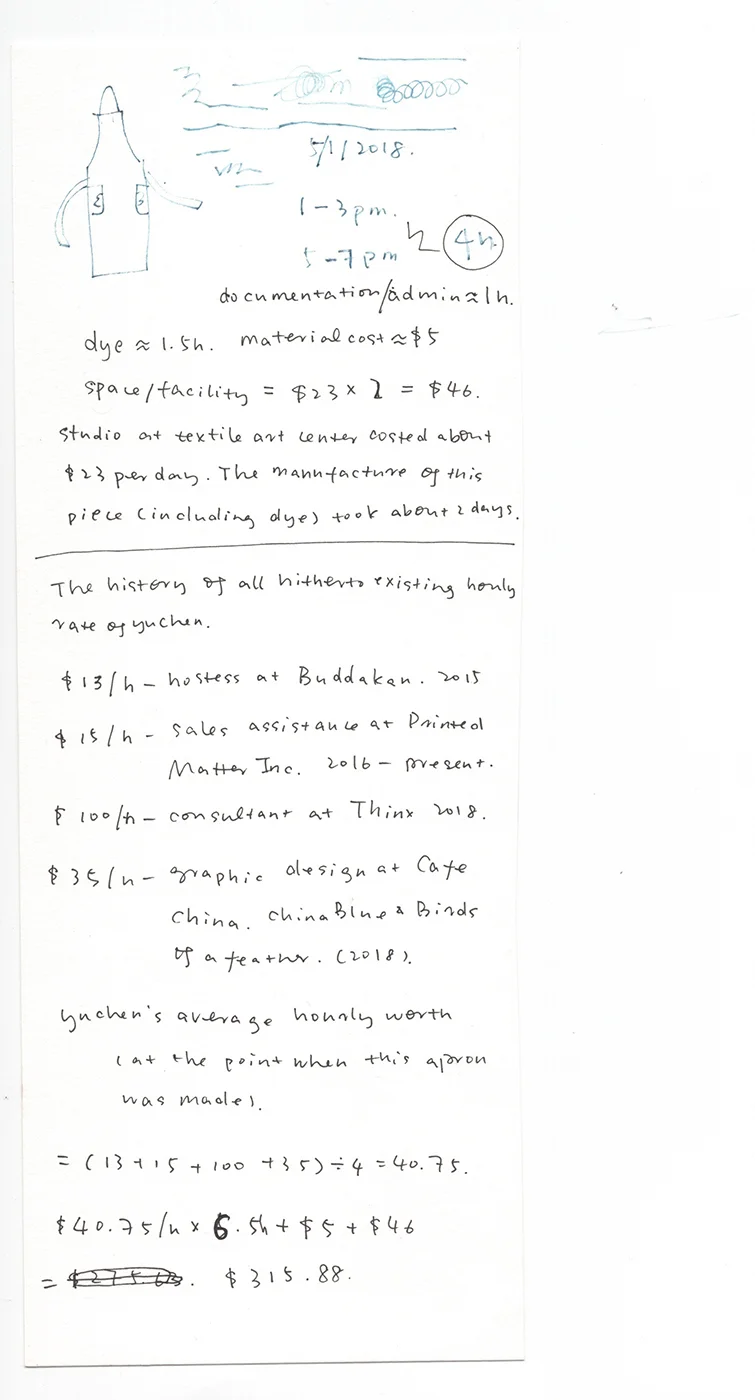 5/1/2018.
1-3pm.
5-7pm
4h
documentation/admin≈1h.
dye ≈ 1.5h. material cost ≈ $5
space/facility = $23 × 2 = $46.
studio at textile art center costed about
$23 per day. The mannfacture of this
piece (including dye) took about 2 days.
The history of all hitherto existing hourly
rate of yuchen.
$13/h - hostess at Buddakan. 2015
$15/h - sales assistance at Printed
Matter Inc. 2016 - present.
$100/h - consultant at Thinx 2018.
$35/h - graphic design at Cafe
China. China Blue & Birds
of a feather. (2018).
yuchen's average hourly worth
(at the point when this apron
was made).
= (13+15+100+35)÷4=40.75.
$40.75/h × 6.5h + $5 + $46
= $315.88.